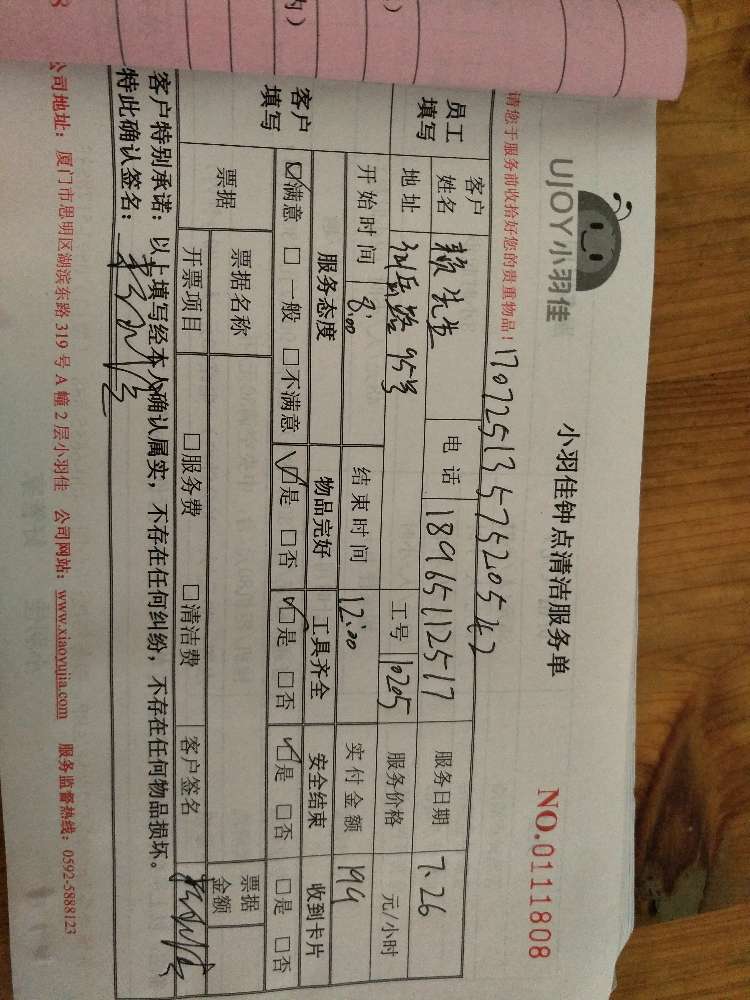 UJOY小羽佳
小羽佳钟点清洁服务单
NO.0111808
请您于服务前收拾好您的贵重物品！
员工填写 客户姓名 赖先生 电话 18965112517 服务日期 7.26
地址 95号 工号 10205 服务价格 元/小时
开始时间 8:00 结束时间 12:00 实付金额 199
客户填写 服务态度 物品完好 工具齐全 安全结束 收到卡片
☑满意 □一般 □不满意 ☑是 □否 ☑是 □否 ☑是 □否 □是 □否
票据 票据名称 票据金额
开票项目 □服务费 □清洁费 客户签名
客户特别承诺：以上填写经本人确认属实，不存在任何纠纷，不存在任何物品损坏。
特此确认签名：
公司地址：厦门市思明区湖滨东路319号A幢2层小羽佳 公司网站：www.xiaoyujia.com 服务监督热线：0592-5888123